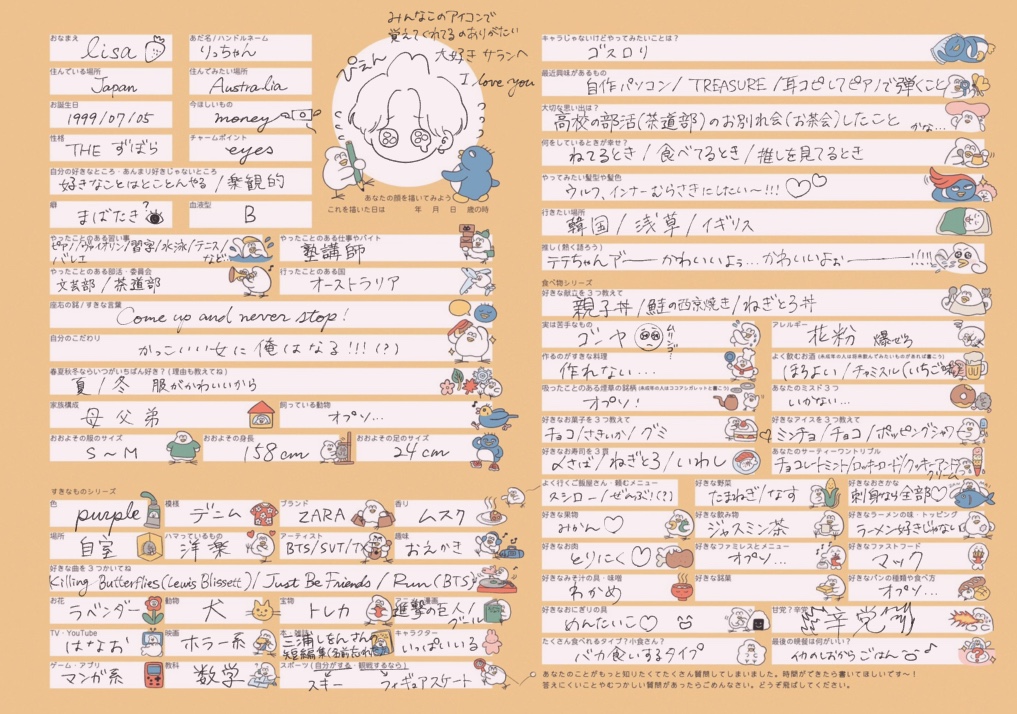 みんなこのアイコンで
覚えてくれてるのありがたい
大好き サランヘ
I love you
ぴえん
おなまえ
lisa
あだ名/ハンドルネーム
りっちゃん
住んでいる場所
Japan
住んでみたい場所
Australia
お誕生日
1999/07/05
今ほしいもの
money
性格
THE ずぼら
チャームポイント
eyes
自分の好きなところ・あんまり好きじゃないところ
好きなことはとことんやる / 楽観的
癖
まばたき?
血液型
B
あなたの顔を描いてみよう
これを描いた日は 年 月 日 歳の時
やったことのある習い事
ピアノ/ヴァイオリン/習字/水泳/テニス/
バレエ など…
やったことのある仕事やバイト
塾講師
やったことのある部活・委員会
文芸部 / 茶道部
行ったことのある国
オーストラリア
座右の銘/すきな言葉
Come up and never stop!
自分のこだわり
かっこいい女に俺はなる!!!(?)
春夏秋冬ならいつがいちばん好き?(理由も教えてね)
夏 / 冬 服がかわいいから
家族構成
母 父 弟
飼っている動物
オプソ…
おおよその服のサイズ
S~M
おおよその身長
158cm
おおよその足のサイズ
24cm
すきなものシリーズ
色
purple
模様
デニム
ブランド
ZARA
香り
ムスク
場所
自室
ハマっているもの
洋楽
アーティスト
BTS/SVT/TX
趣味
おえかき
好きな曲を3つかいてね
Killing Butterflies(Lewis Blissett) / Just Be Friends / Run (BTS)
お花
ラベンダー
動物
犬
宝物
トレカ
アニメ・漫画
進撃の巨人/
グール
TV・YouTube
はなお
映画
ホラー系
本・雑誌
三浦しをんさん
短編集(名前忘れ
キャラクター
いっぱいいる
ゲーム・アプリ
マンガ系
教科
数学
スポーツ(自分がする・観戦するなら)
スキー
フィギュアスケート
キャラじゃないけどやってみたいことは?
ゴスロリ
最近興味があるもの
自作パソコン/ TREASURE / 耳コピしてピアノで弾くこと
大切な思い出は?
高校の部活(茶道部)のお別れ会(お茶会)したこと
かな…
何をしているときが幸せ?
ねてるとき / 食べてるとき / 推しを見てるとき
やってみたい髪型や髪色
ウルフ、インナーむらさきにしたい~!!!
行きたい場所
韓国 / 浅草 / イギリス
推し(熱く語ろう)
テテちゃんアーーかわいいよぉ…かわいいよぉーーー!!!!
食べ物シリーズ
好きな献立を3つ教えて
親子丼 / 鮭の西京焼き / ねぎとろ丼
実は苦手なもの
ゴーヤ
アレルギー
花粉 爆ぜろ
作るのがすきな料理
作れない…
よく飲むお酒(未成年の人は将来飲んでみたいものがあれば書こう)
ほろよい / チャミスル(いちご味)
吸ったことのある煙草の銘柄(未成年の人はココアシガレットと書こう)
オプソ!
あなたのミスド3つ
いかない…
好きなお菓子を3つ教えて
チョコ / さきいか / グミ
好きなアイスを3つ教えて
ミンチョ / チョコ / ポッピングシャワ
好きなお寿司を3貫
〆さば / ねぎとろ / いわし
あなたのサーティーワントリプル
チョコレートミント/ロッキーロード/クッキーアンド
クリーム
よく行くご飯屋さん・頼むメニュー
スシロー / ぜんぶ!(?)
好きな野菜
たまねぎ / なす
好きなおさかな
刺身なら全部♡
好きな果物
みかん♡
好きな飲み物
ジャスミン茶
好きなラーメンの味・トッピング
ラーメン好きじゃない
好きなお肉
とりにく♡
好きなファミレスとメニュー
オプソ…
好きなファストフード
マック
好きなみそ汁の具・味噌
わかめ
好きな銘菓
オプソ…
好きなパンの種類や食べ方
オプソ…
好きなおにぎりの具
めんたいこ♡
甘党?辛党?
辛党
たくさん食べれるタイプ?小食さん?
バカ食いするタイプ
最後の晩餐は何がいい?
イカめしおからごはん
あなたのことがもっと知りたくてたくさん質問してしまいました。時間ができたら書いてほしいです~!
答えにくいことやむつかしい質問があったらごめんなさい。どうぞ飛ばしてください。